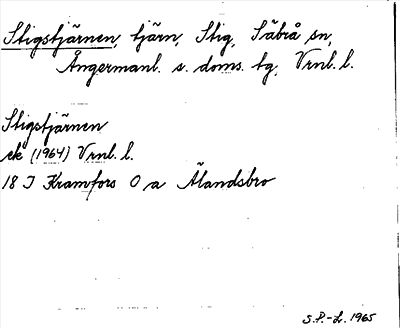 Stigstjärnen, tjärn, Stig, Säbrå sn,
Ångermanl. s. doms. tg, Vrnl. l.
Stigstjärnen
ek (1964) Vrnl. l.
18 I Kramfors O a Älandsbro
S.P.-L. 1965